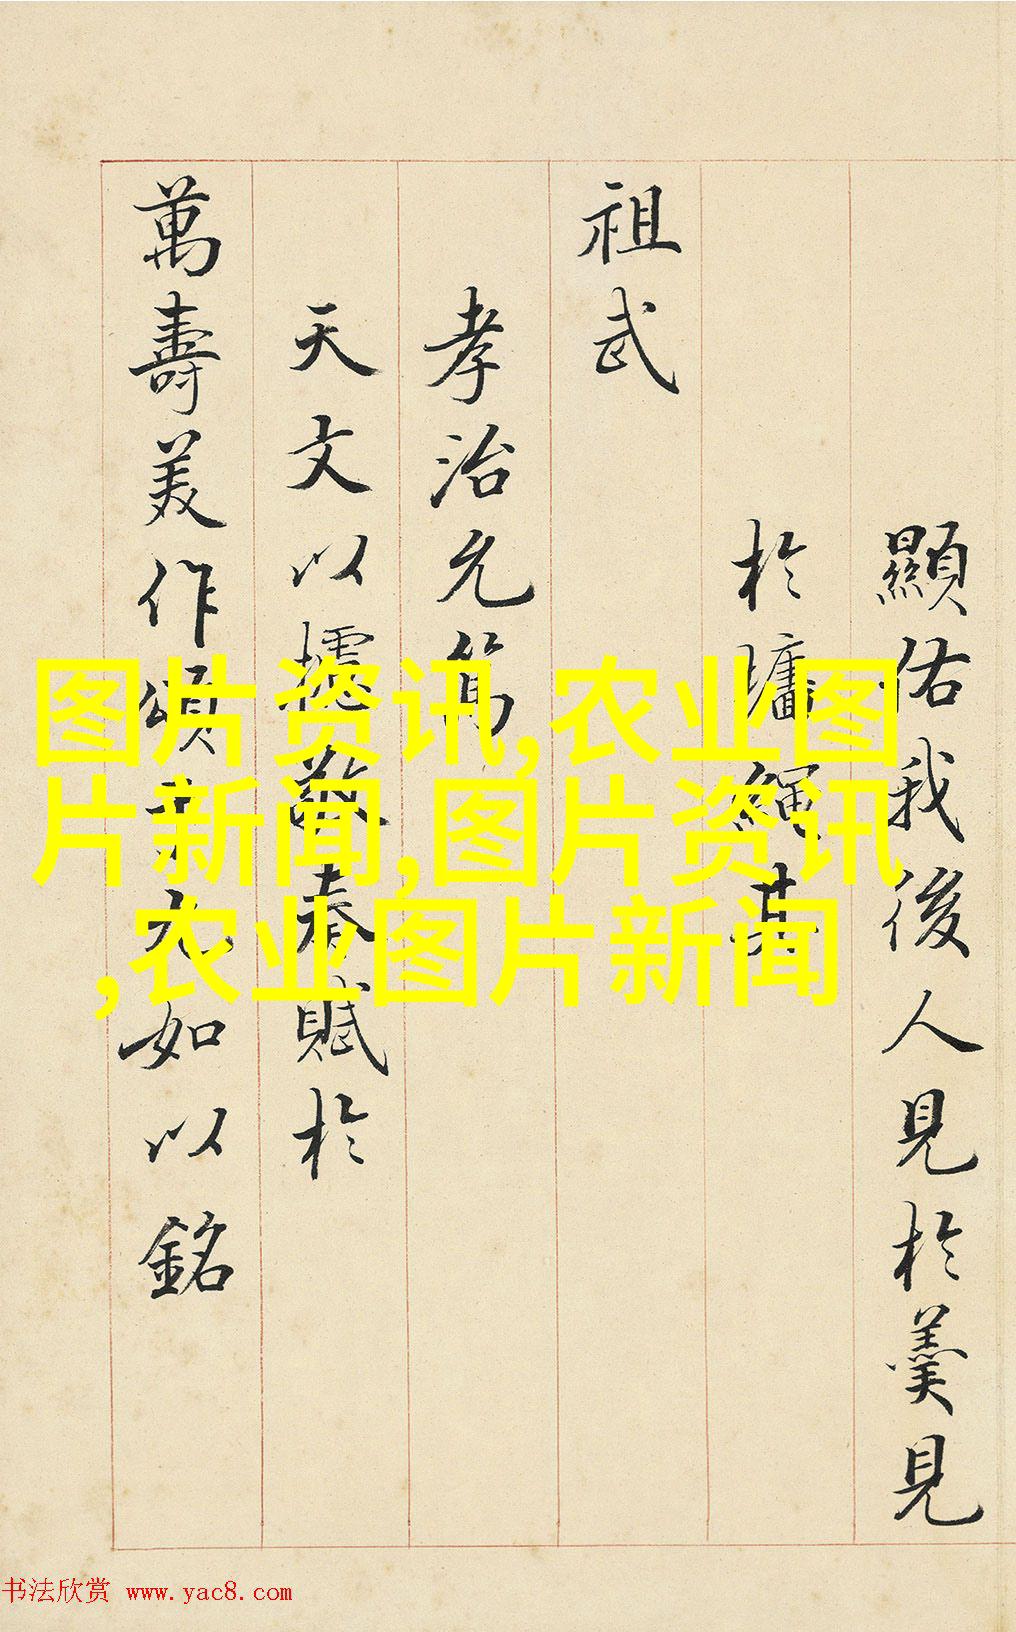 顯佑我後人見於羹見
於墉繩其
祖武
孝治允篤
天文以攄敬奏賦於
萬壽美作頌九如以銘
图片资讯,农业图
片新闻,图片资讯
,农业图片新闻
书法欣赏 www.yac8.com